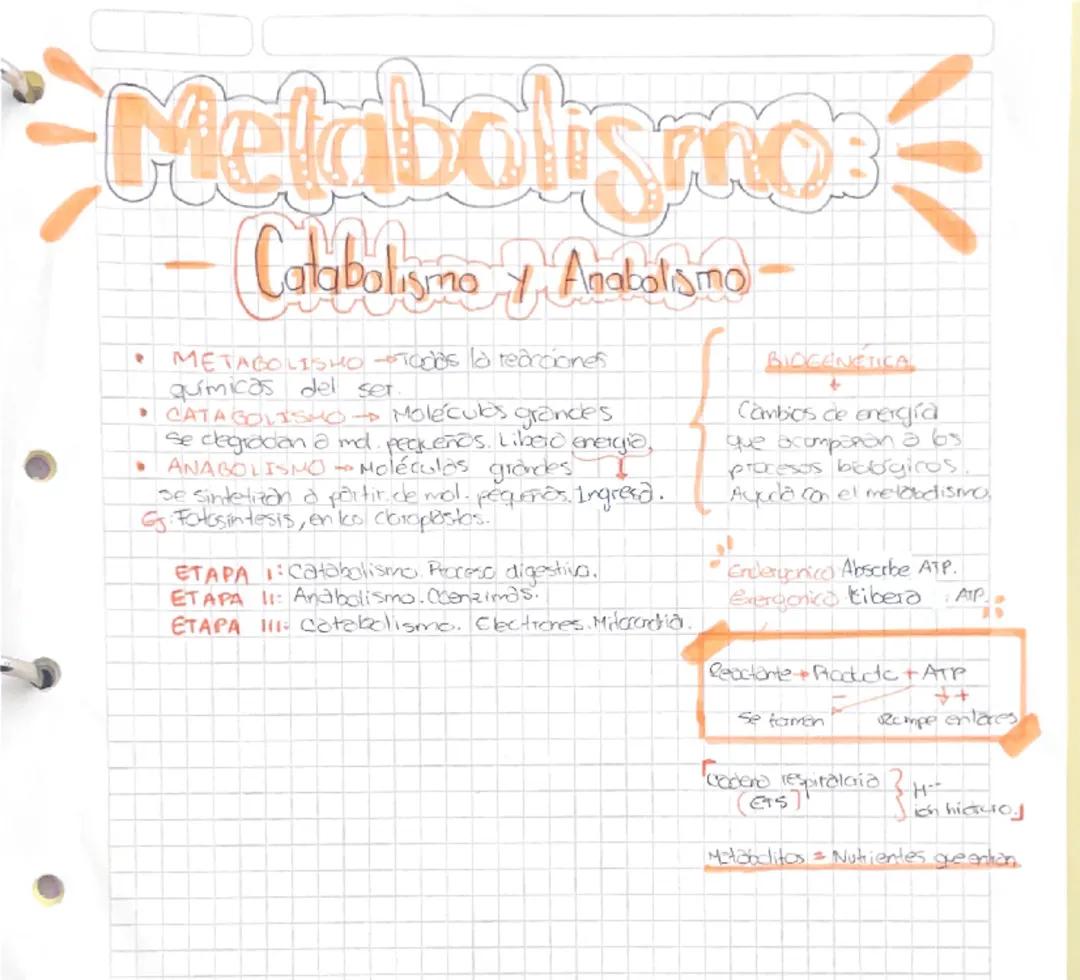 Metabolismo:
- Catabolismo y Anabolismo -
• METABOLISMO → Todas la reacciones
químicas del ser.
• CATABOLISMO → Moléculas grandes
se degradan a mol. pequeños. Libera energía.
• ANABOLISMO → Moléculas grandes
se sintetizan a partir de mol. pequeñas. Ingresa.
Ej: Fotosíntesis, en los cloroplastos.
ETAPA I: Catabolismo. Proceso digestivo.
ETAPA II: Anabolismo. Coenzimas.
ETAPA III: Catabolismo. Electrones. Mitocondria.
BIOGENÉTICA
Cambios de energía
que acompañan a los
procesos biológicos.
Ayuda con el metabolismo.
Endergonico Absorbe ATP.
Exergonico Libera : ATP.
Reactante → Producto + ATP
- ↓ +
se forman Rompe enlaces
Cadena respiratoria
(ETS)
H--
ión hidruro.
Metabolitos = Nutrientes que entran